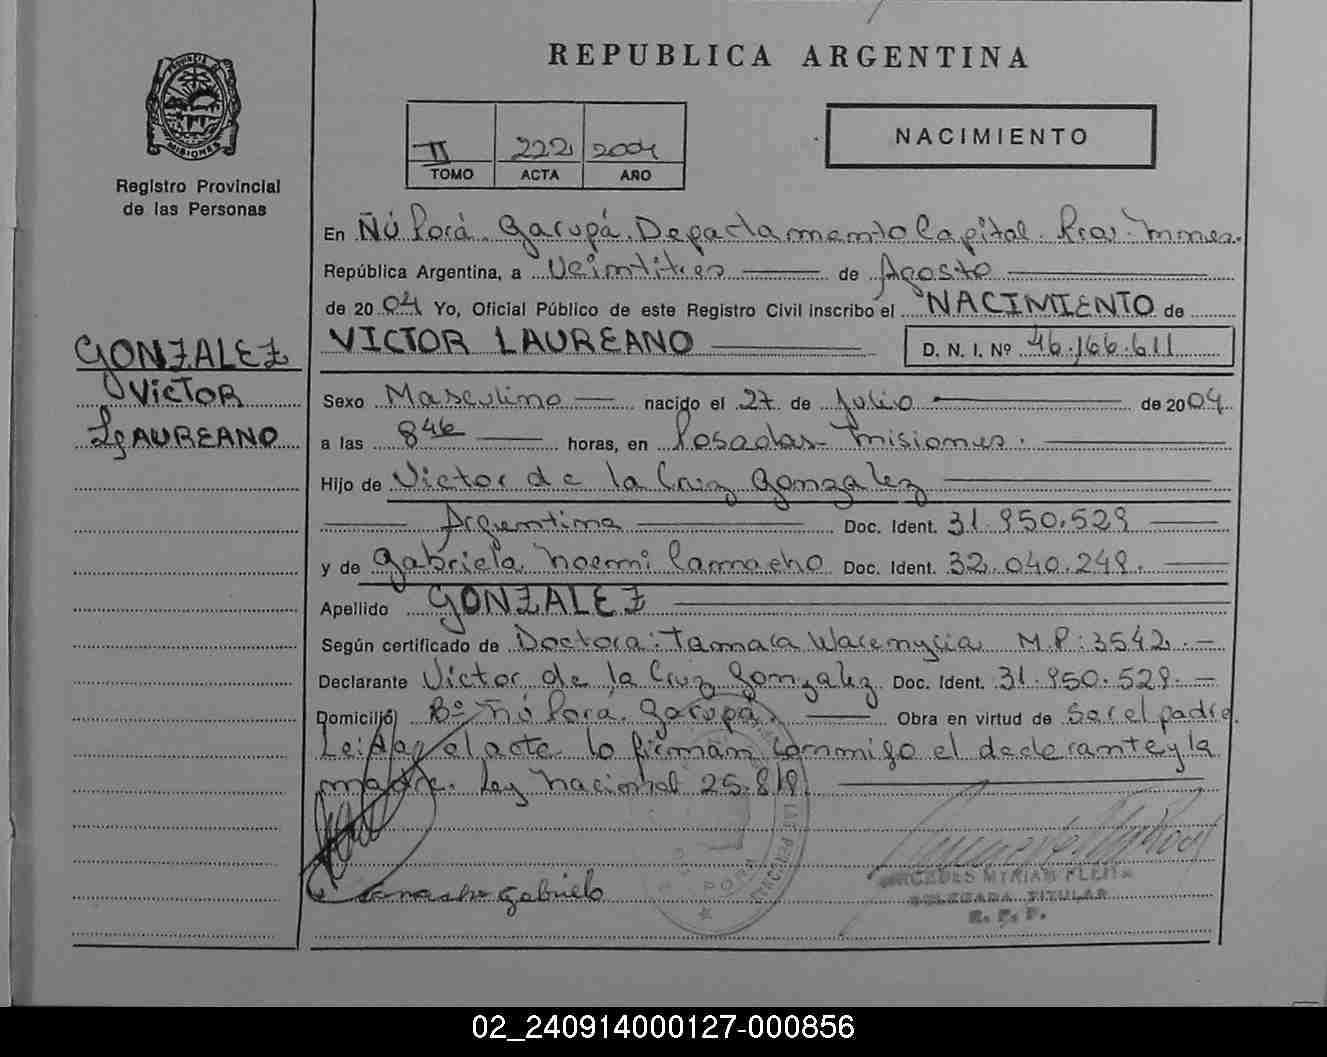 REPUBLICA ARGENTINA
PROVINCIA DE
MISIONES
Registro Provincial
de las Personas
II 222 2004
TOMO ACTA AÑO
NACIMIENTO
En Ñú Porá. Garupá. Departamento Capital. Pcia. Mnes.
República Argentina, a Veintitres de Agosto
de 2004 Yo, Oficial Público de este Registro Civil inscribo el NACIMIENTO de
VICTOR LAUREANO D. N. I. Nº 46.166.611
GONZALEZ
VICTOR
LAUREANO
Sexo Masculino nacido el 27 de Julio de 2004
a las 8 46 horas, en Posadas - Misiones.
Hijo de Victor de la Cruz Gonzalez
Argentina Doc. Ident. 31.950.529
y de Gabriela Noemi Camacho Doc. Ident. 32.040.249.
Apellido GONZALEZ
Según certificado de Doctora: Tamara M.P: 3542.
Declarante Victor de la Cruz Gonzalez Doc. Ident. 31.950.529.
Domicilio Bº Ñú Porá. Garupá. Obra en virtud de Ser el padre.
Leida el acta lo firman conmigo el declarante y la
madre. Ley Nacional 25.819.
Camacho Gabriela
MYRIAM
DELEGADA TITULAR
R. P. P.
02_240914000127-000856